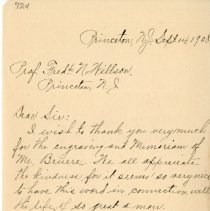 724
Princeton N.J. Sept 14, 1908
Prof. Fredk N. Willson,
Princeton, N.J
Dear Sir:
I wish to thank you very much
for the engraving and Memoriam of
Mr. Bruere. We all appreciate
the kindness for it seems so very nice
to have this word in connection with
the life of so great a man.